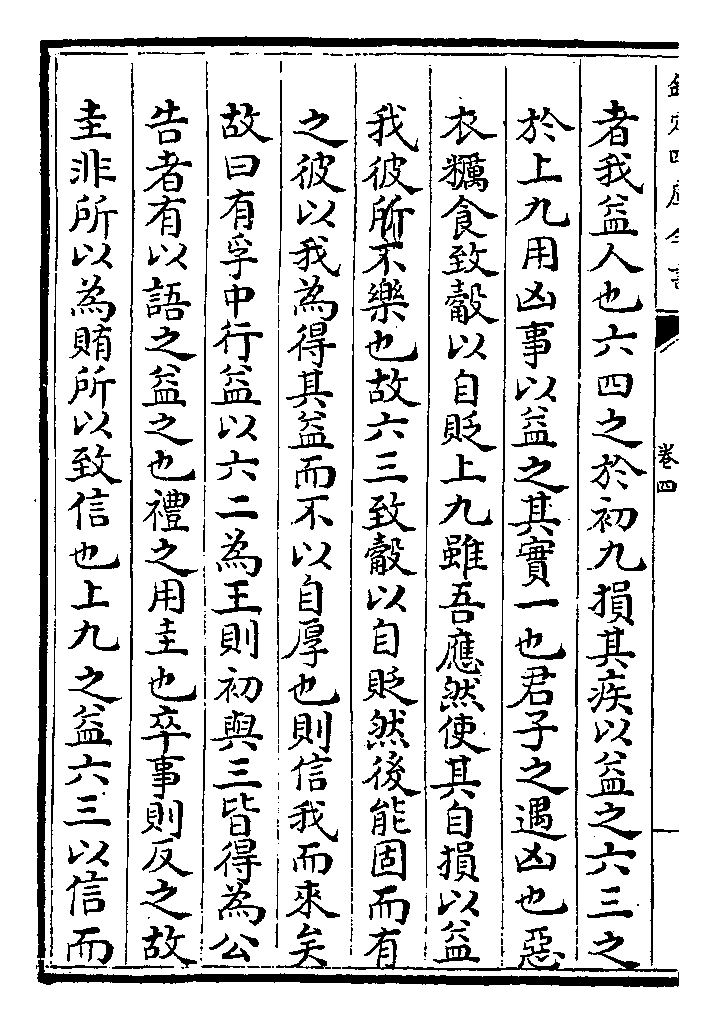 欽定四庫全書
卷四
者我益人也六四之於初九損其疾以益之六三之
於上九用凶事以益之其實一也君子之遇凶也惡
衣糲食致觳以自貶上九雖吾應然使其自損以益
我彼所不樂也故六三致觳以自貶然後能固而有
之彼以我為得其益而不以自厚也則信我而來矣
故曰有孚中行益以六二為王則初與三皆得為公
告者有以語之益之也禮之用圭也卒事則反之故
圭非所以為賄所以致信也上九之益六三以信而